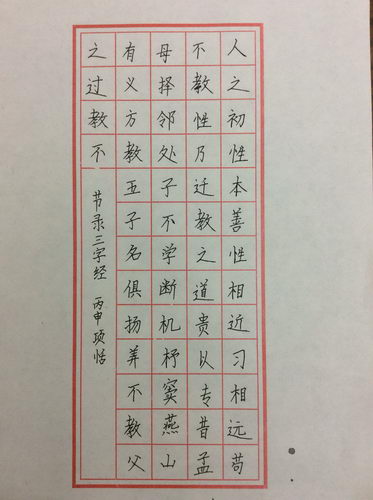 人之初性本善性相近习相远苟
不教性乃迁教之道贵以专昔孟
母择邻处子不学断机杼窦燕山
有义方教五子名俱扬养不教父
之过教不
节录三字经 丙申项恬